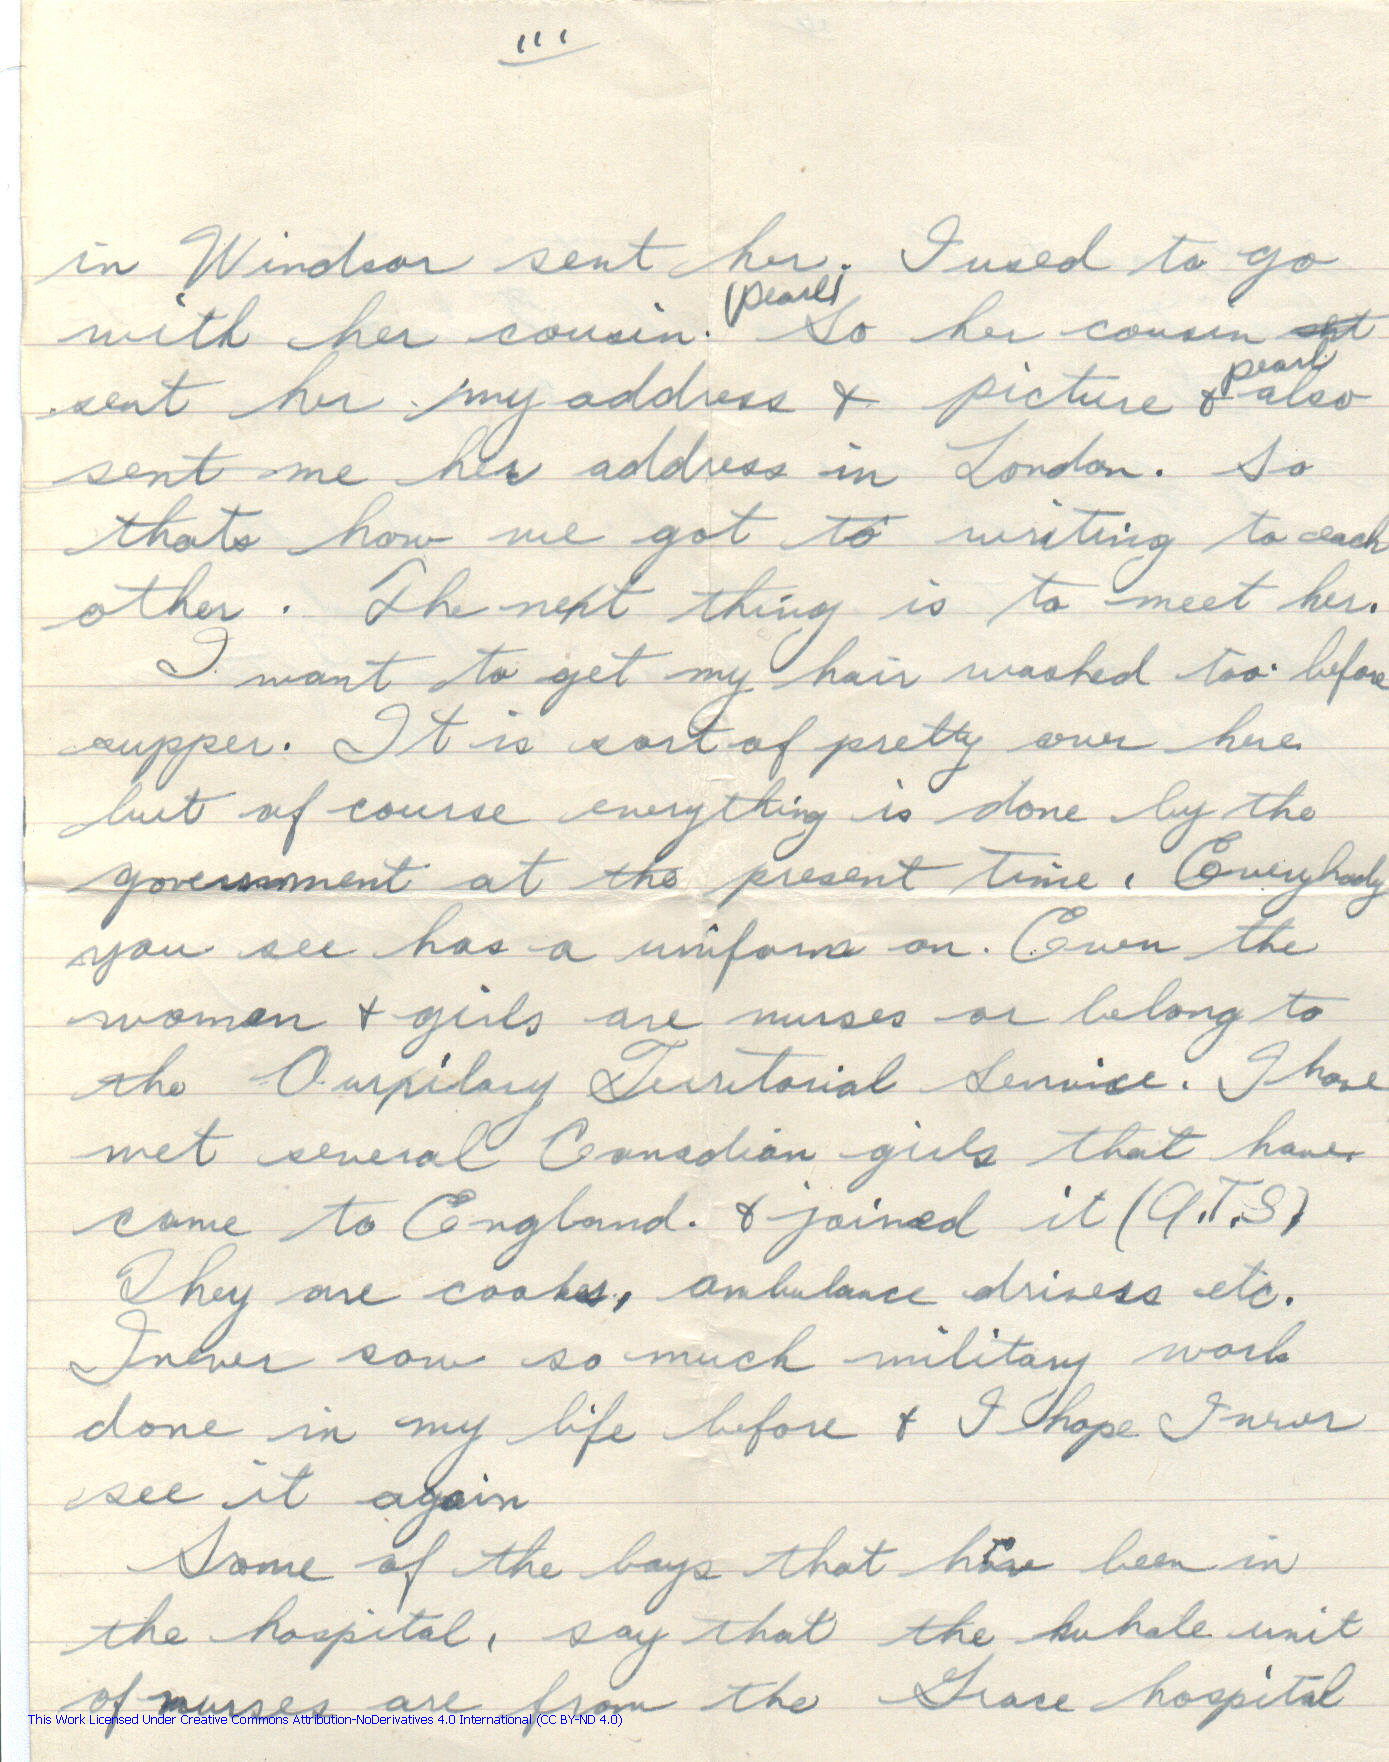 III
in Windsor sent her. I used to go
with her cousin. (Pearl) So her cousin
sent her my address & picture & pearl also
sent me her address in London. So
thats how we got to writing to each
other. The next thing is to meet her.
I want to get my hair washed too before
supper. It is sort of pretty over here
but of course everything is done by the
government at the present time. Everybody
you see has a uniform on. Even the
women & girls are nurses or belong to
the Auxilary Territorial Service. I have
met several Canadian girls that have
come to England. & joined it (A.T.S)
They are cooks, ambulance drivers etc.
I never saw so much military work
done in my life before & I hope I never
see it again
Some of the boys that have been in
the hospital, say that the whole unit
of nurses are from the Grace hospital
This Work Licensed Under Creative Commons Attribution-NoDerivatives 4.0 International (CC BY-ND 4.0)